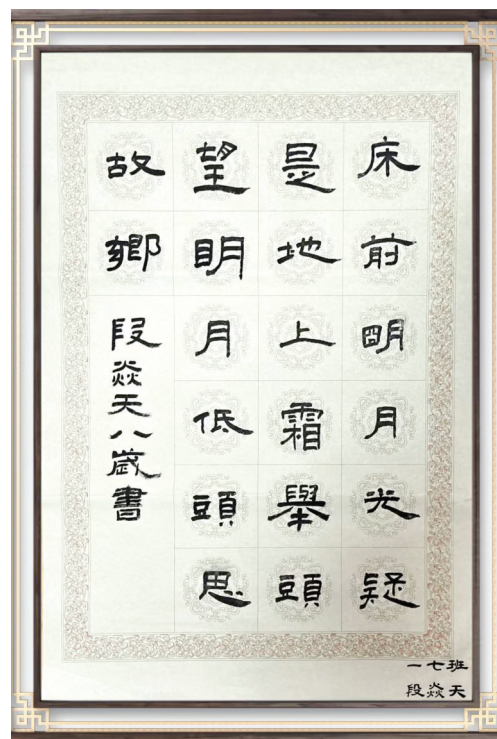 床前明月光疑
是地上霜舉頭
望明月低頭思
故鄉
段焱天八歲書
一七班
段焱天